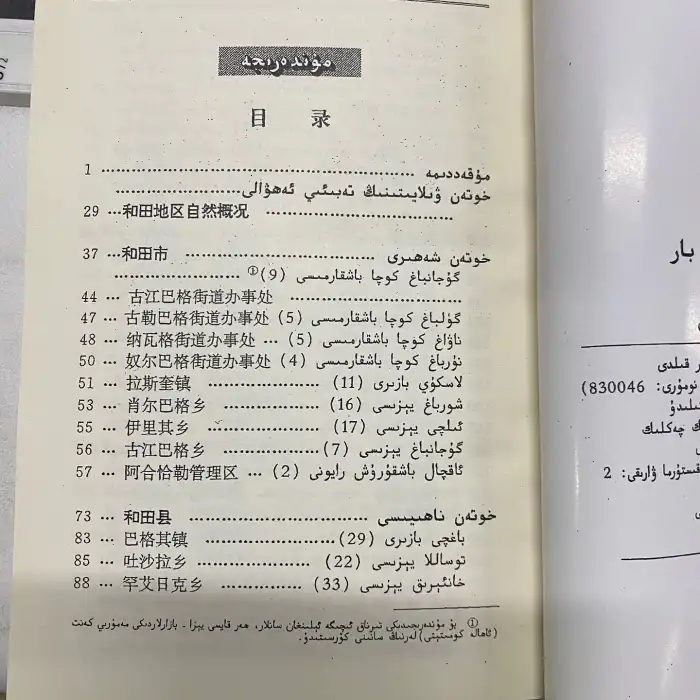 مۇندەرىجە
目 录
مۇقەددىمە ........ 1
خوتەن ۋىلايىتىنىڭ تەبىئىي ئەھۋالى........
........ 和田地区自然概况 ... 29
خوتەن شەھىرى ........ 和田市... 37
گۇجانباغ كوچا باشقارمىسى (9)① ........
........ 古江巴格街道办事处 ... 44
گۈلباغ كوچا باشقارمىسى (5) 古勒巴格街道办事处 ... 47
ناۋاغ كوچا باشقارمىسى (5) ... 纳瓦格街道办事处 ... 48
نۇرباغ كوچا باشقارمىسى (4) 奴尔巴格街道办事处 ... 50
لاسكۇي بازىرى (11) ........ 拉斯奎镇 ... 51
شورباغ يېزىسى (16) ........ 肖尔巴格乡 ... 53
ئىلچى يېزىسى (17) ........ 伊里其乡 ... 55
گۇجانباغ يېزىسى (7) ........ 古江巴格乡 ... 56
ئاقچال باشقۇرۇش رايونى (2) ... 阿合恰勒管理区 ... 57
خوتەن ناھىيىسى ........ 和田县 ... 73
باغچى بازىرى (29) ........ 巴格其镇 ... 83
توساللا يېزىسى (22) ........ 吐沙拉乡 ... 85
خانئېرىق يېزىسى (33) ........ 罕艾日克乡 ... 88
① بۇ مۇندەرىجىدىكى تىرناق ئىچىگە ئېلىنغان سانلار، ھەر قايسى يېزا - بازارلاردىكى مەمۇرىي كەنت
(ئاھالە كومىتېتى) لەرنىڭ سانىنى كۆرسىتىدۇ.
بار
ر قىلدى
نومۇرى: 830046)
ىلىدۇ
ڭ چەكلىك
ى
قىستۇرما ۋارىقى: 2
ى